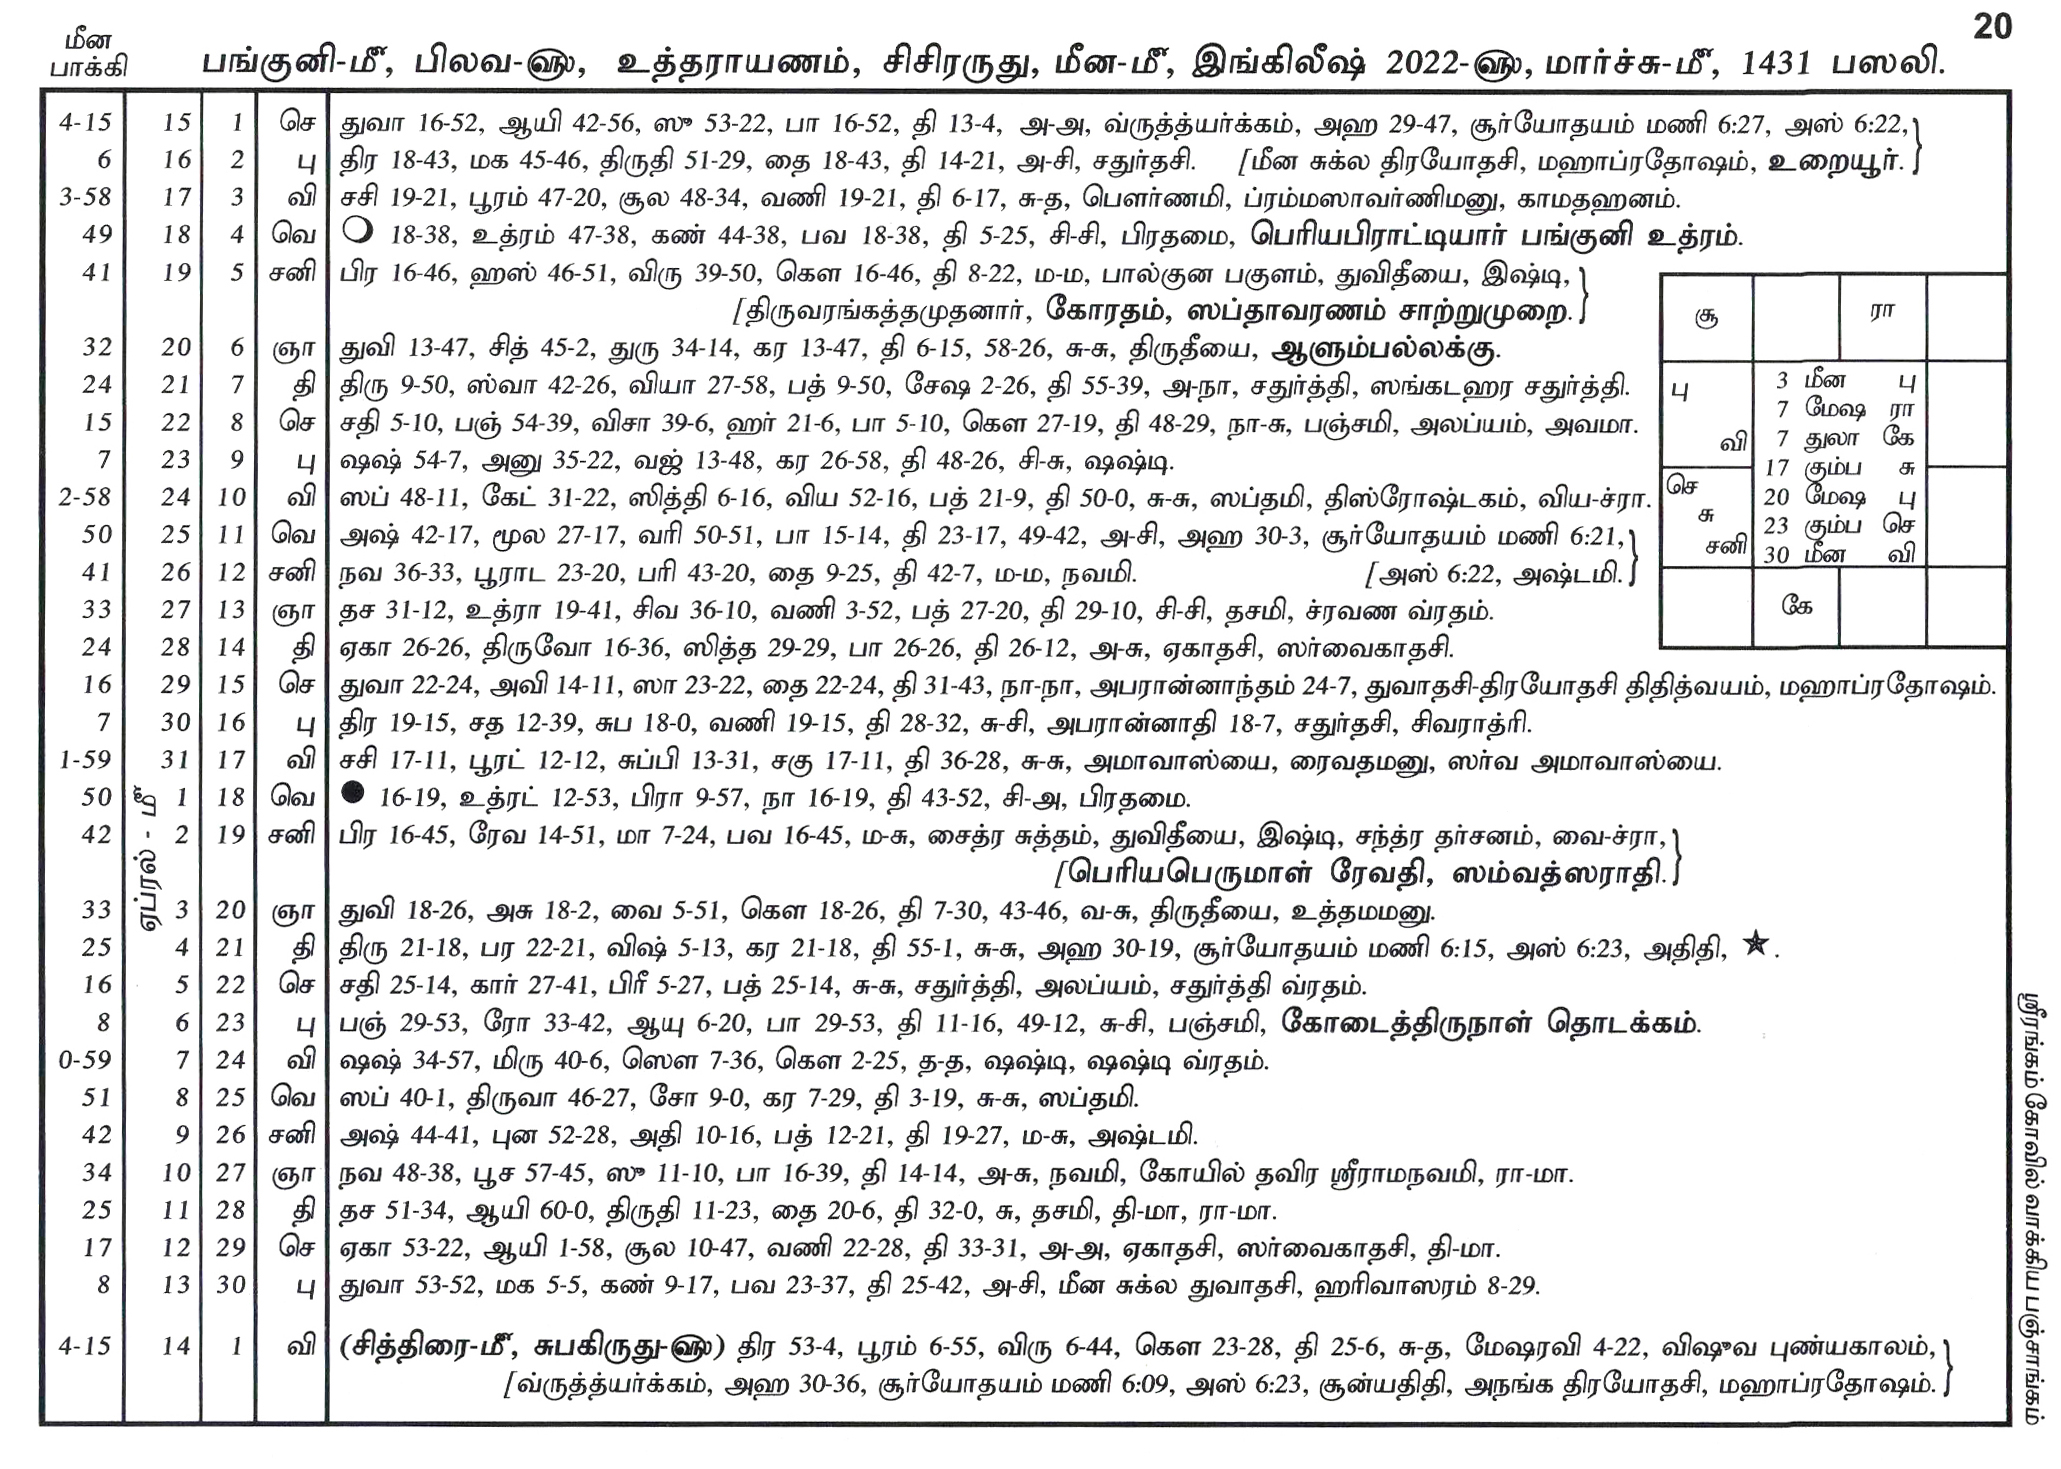 20
மீன
பாக்கி
பங்குனி-மீ, பிலவ-௵, உத்தராயணம், சிசிரருது, மீன-மீ, இங்கிலீஷ் 2022-௵, மார்ச்சு-மீ, 1431 பஸலி.
4-15 15 1 செ துவா 16-52, ஆயி 42-56, ஸு 53-22, பா 16-52, தி 13-4, அ-அ, வ்ருத்த்யர்க்கம், அஹ 29-47, சூர்யோதயம் மணி 6:27, அஸ் 6:22,}
6 16 2 பு திர 18-43, மக 45-46, திருதி 51-29, தை 18-43, தி 14-21, அ-சி, சதுர்தசி. [மீன சுக்ல திரயோதசி, மஹாப்ரதோஷம், உறையூர்.
3-58 17 3 வி சசி 19-21, பூரம் 47-20, சூல 48-34, வணி 19-21, தி 6-17, சு-த, பௌர்ணமி, ப்ரம்மஸாவர்ணிமனு, காமதஹனம்.
49 18 4 வெ 18-38, உத்ரம் 47-38, கண் 44-38, பவ 18-38, தி 5-25, சி-சி, பிரதமை, பெரியபிராட்டியார் பங்குனி உத்ரம்.
41 19 5 சனி பிர 16-46, ஹஸ் 46-51, விரு 39-50, கௌ 16-46, தி 8-22, ம-ம, பால்குன பகுளம், துவிதீயை, இஷ்டி,}
[திருவரங்கத்தமுதனார், கோரதம், ஸப்தாவரணம் சாற்றுமுறை.
32 20 6 ஞா துவி 13-47, சித் 45-2, துரு 34-14, கர 13-47, தி 6-15, 58-26, சு-சு, திருதீயை, ஆளும்பல்லக்கு.
24 21 7 தி திரு 9-50, ஸ்வா 42-26, வியா 27-58, பத் 9-50, சேஷ 2-26, தி 55-39, அ-நா, சதுர்த்தி, ஸங்கடஹர சதுர்த்தி.
15 22 8 செ சதி 5-10, பஞ் 54-39, விசா 39-6, ஹர் 21-6, பா 5-10, கௌ 27-19, தி 48-29, நா-சு, பஞ்சமி, அலப்யம், அவமா.
7 23 9 பு ஷஷ் 54-7, அனு 35-22, வஜ் 13-48, கர 26-58, தி 48-26, சி-சு, ஷஷ்டி.
2-58 24 10 வி ஸப் 48-11, கேட் 31-22, ஸித்தி 6-16, விய 52-16, பத் 21-9, தி 50-0, சு-சு, ஸப்தமி, திஸ்ரோஷ்டகம், விய-ச்ரா.
50 25 11 வெ அஷ் 42-17, மூல 27-17, வரி 50-51, பா 15-14, தி 23-17, 49-42, அ-சி, அஹ 30-3, சூர்யோதயம் மணி 6:21,}
41 26 12 சனி நவ 36-33, பூராட 23-20, பரி 43-20, தை 9-25, தி 42-7, ம-ம, நவமி. [அஸ் 6:22, அஷ்டமி.
33 27 13 ஞா தச 31-12, உத்ரா 19-41, சிவ 36-10, வணி 3-52, பத் 27-20, தி 29-10, சி-சி, தசமி, ச்ரவண வ்ரதம்.
24 28 14 தி ஏகா 26-26, திருவோ 16-36, ஸித்த 29-29, பா 26-26, தி 26-12, அ-சு, ஏகாதசி, ஸர்வைகாதசி.
16 29 15 செ துவா 22-24, அவி 14-11, ஸா 23-22, தை 22-24, தி 31-43, நா-நா, அபரான்னாந்தம் 24-7, துவாதசி-திரயோதசி திதித்வயம், மஹாப்ரதோஷம்.
7 30 16 பு திர 19-15, சத 12-39, சுப 18-0, வணி 19-15, தி 28-32, சு-சி, அபரான்னாதி 18-7, சதுர்தசி, சிவராத்ரி.
1-59 31 17 வி சசி 17-11, பூரட் 12-12, சுப்பி 13-31, சகு 17-11, தி 36-28, சு-சு, அமாவாஸ்யை, ரைவதமனு, ஸர்வ அமாவாஸ்யை.
ஏப்ரல் - மீ
50 1 18 வெ 16-19, உத்ரட் 12-53, பிரா 9-57, நா 16-19, தி 43-52, சி-அ, பிரதமை.
42 2 19 சனி பிர 16-45, ரேவ 14-51, மா 7-24, பவ 16-45, ம-சு, சைத்ர சுத்தம், துவிதீயை, இஷ்டி, சந்த்ர தர்சனம், வை-ச்ரா,}
[பெரியபெருமாள் ரேவதி, ஸம்வத்ஸராதி.
33 3 20 ஞா துவி 18-26, அசு 18-2, வை 5-51, கௌ 18-26, தி 7-30, 43-46, வ-சு, திருதீயை, உத்தமமனு.
25 4 21 தி திரு 21-18, பர 22-21, விஷ் 5-13, கர 21-18, தி 55-1, சு-சு, அஹ 30-19, சூர்யோதயம் மணி 6:15, அஸ் 6:23, அதிதி, ★.
16 5 22 செ சதி 25-14, கார் 27-41, பிரீ 5-27, பத் 25-14, சு-சு, சதுர்த்தி, அலப்யம், சதுர்த்தி வ்ரதம்.
8 6 23 பு பஞ் 29-53, ரோ 33-42, ஆயு 6-20, பா 29-53, தி 11-16, 49-12, சு-சி, பஞ்சமி, கோடைத்திருநாள் தொடக்கம்.
0-59 7 24 வி ஷஷ் 34-57, மிரு 40-6, ஸௌ 7-36, கௌ 2-25, த-த, ஷஷ்டி, ஷஷ்டி வ்ரதம்.
51 8 25 வெ ஸப் 40-1, திருவா 46-27, சோ 9-0, கர 7-29, தி 3-19, சு-சு, ஸப்தமி.
42 9 26 சனி அஷ் 44-41, புன 52-28, அதி 10-16, பத் 12-21, தி 19-27, ம-சு, அஷ்டமி.
34 10 27 ஞா நவ 48-38, பூச 57-45, ஸு 11-10, பா 16-39, தி 14-14, அ-சு, நவமி, கோயில் தவிர ஸ்ரீராமநவமி, ரா-மா.
25 11 28 தி தச 51-34, ஆயி 60-0, திருதி 11-23, தை 20-6, தி 32-0, சு, தசமி, தி-மா, ரா-மா.
17 12 29 செ ஏகா 53-22, ஆயி 1-58, சூல 10-47, வணி 22-28, தி 33-31, அ-அ, ஏகாதசி, ஸர்வைகாதசி, தி-மா.
8 13 30 பு துவா 53-52, மக 5-5, கண் 9-17, பவ 23-37, தி 25-42, அ-சி, மீன சுக்ல துவாதசி, ஹரிவாஸரம் 8-29.
4-15 14 1 வி (சித்திரை-மீ, சுபகிருது-௵) திர 53-4, பூரம் 6-55, விரு 6-44, கௌ 23-28, தி 25-6, சு-த, மேஷரவி 4-22, விஷுவ புண்யகாலம்,}
[வ்ருத்த்யர்க்கம், அஹ 30-36, சூர்யோதயம் மணி 6:09, அஸ் 6:23, சூன்யதிதி, அநங்க திரயோதசி, மஹாப்ரதோஷம்.
சூ
ரா
பு
வி
செ
சு
சனி
3 மீன பு
7 மேஷ ரா
7 துலா கே
17 கும்ப சு
20 மேஷ பு
23 கும்ப செ
30 மீன வி
கே
ஸ்ரீரங்கம் கோவில் வாக்கிய பஞ்சாங்கம்